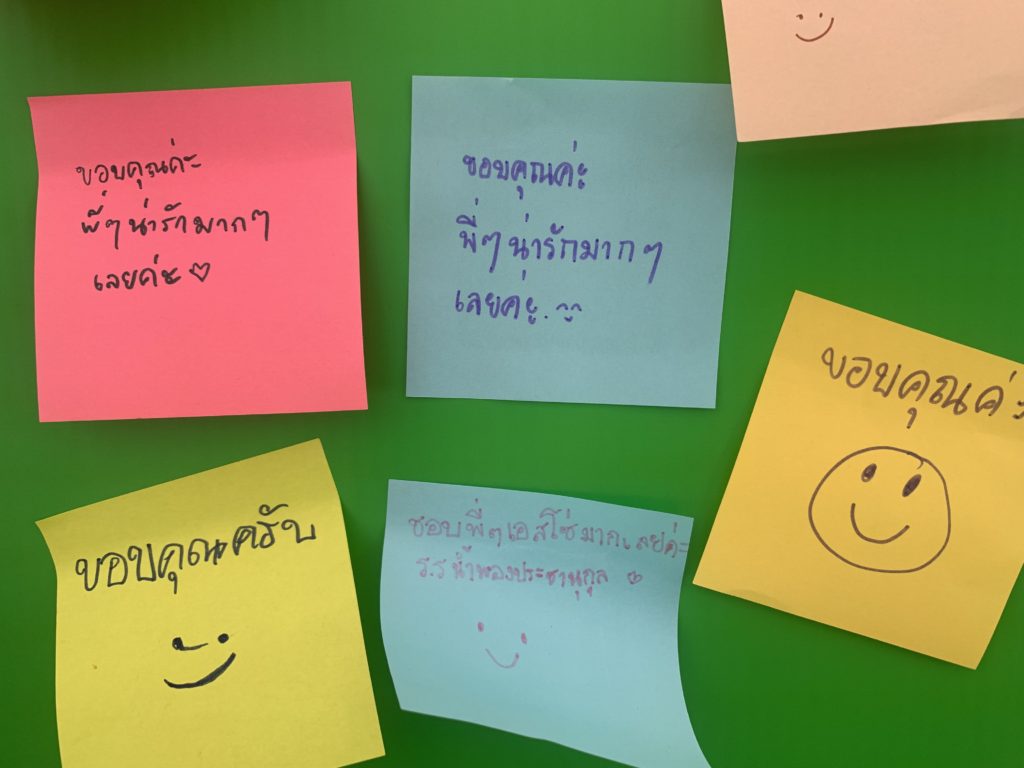 ขอบคุณค่ะ
พี่ๆน่ารักมากๆ
เลยค่ะ♡
ขอบคุณค่ะ
พี่ๆน่ารักมากๆ
เลยค่ะ.
ขอบคุณค่ะ
ขอบคุณครับ
ชอบพี่ๆเอสโซ่มากเลยค่ะ
ร.ร น้ำพองประชานุกูล ♡